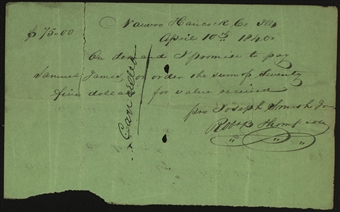 $75.00 Nauvoo Hancock Co Ills
April 10th 1840
On demand I promise to pay
Samuel James, or order the sum of seventy
five dollars for value received
per Joseph Smith Jr
Robt B Thompson
Cancelled